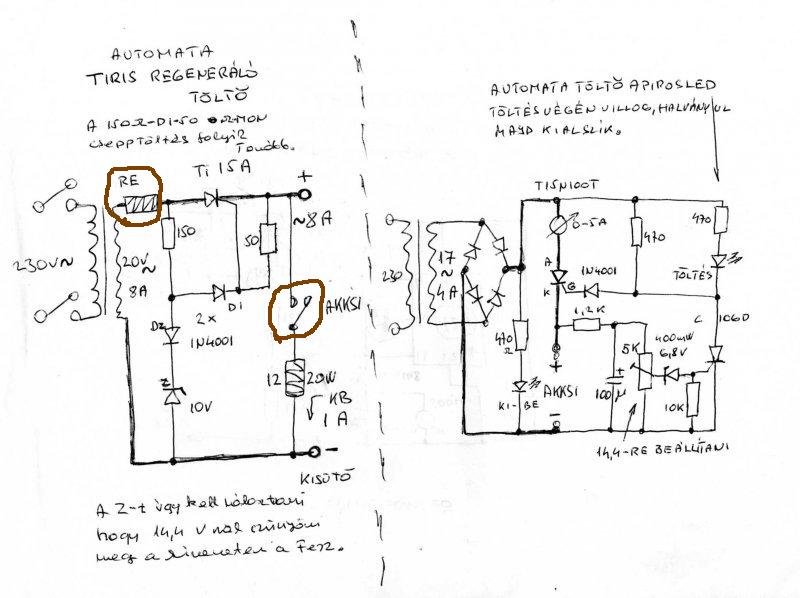 AUTOMATA
TIRIS REGENERÁLÓ
TÖLTŐ
A 150Ω-DI-50 ORMON
CSEPPTÖLTÉS folyik
Tovább.
RE
Ti 15A
+
150
50
~8A
230V~
20V~
8A
DI
2x
AKKSI
DZ
1N4001
Z
10V
12
20W
KB
1A
-
KISÜTŐ
A Z-t úgy kell
hogy 14,4 V nál
meg a a Fesz.
AUTOMATA TÖLTŐ A PIROS LED
TÖLTÉS VÉGÉN VILLOG, HALVÁNYUL
MAJD KIALSZIK.
T15N100T
0-5A
470
470
TÖLTÉS
230
17
~
4A
A
K
G
1N4001
1,2K
C
106D
470
Ω
KI-BE
+
AKKSI
-
+
100µ
5K
400mW
6,8V
10K
14,4-RE BEÁLLÍTANI